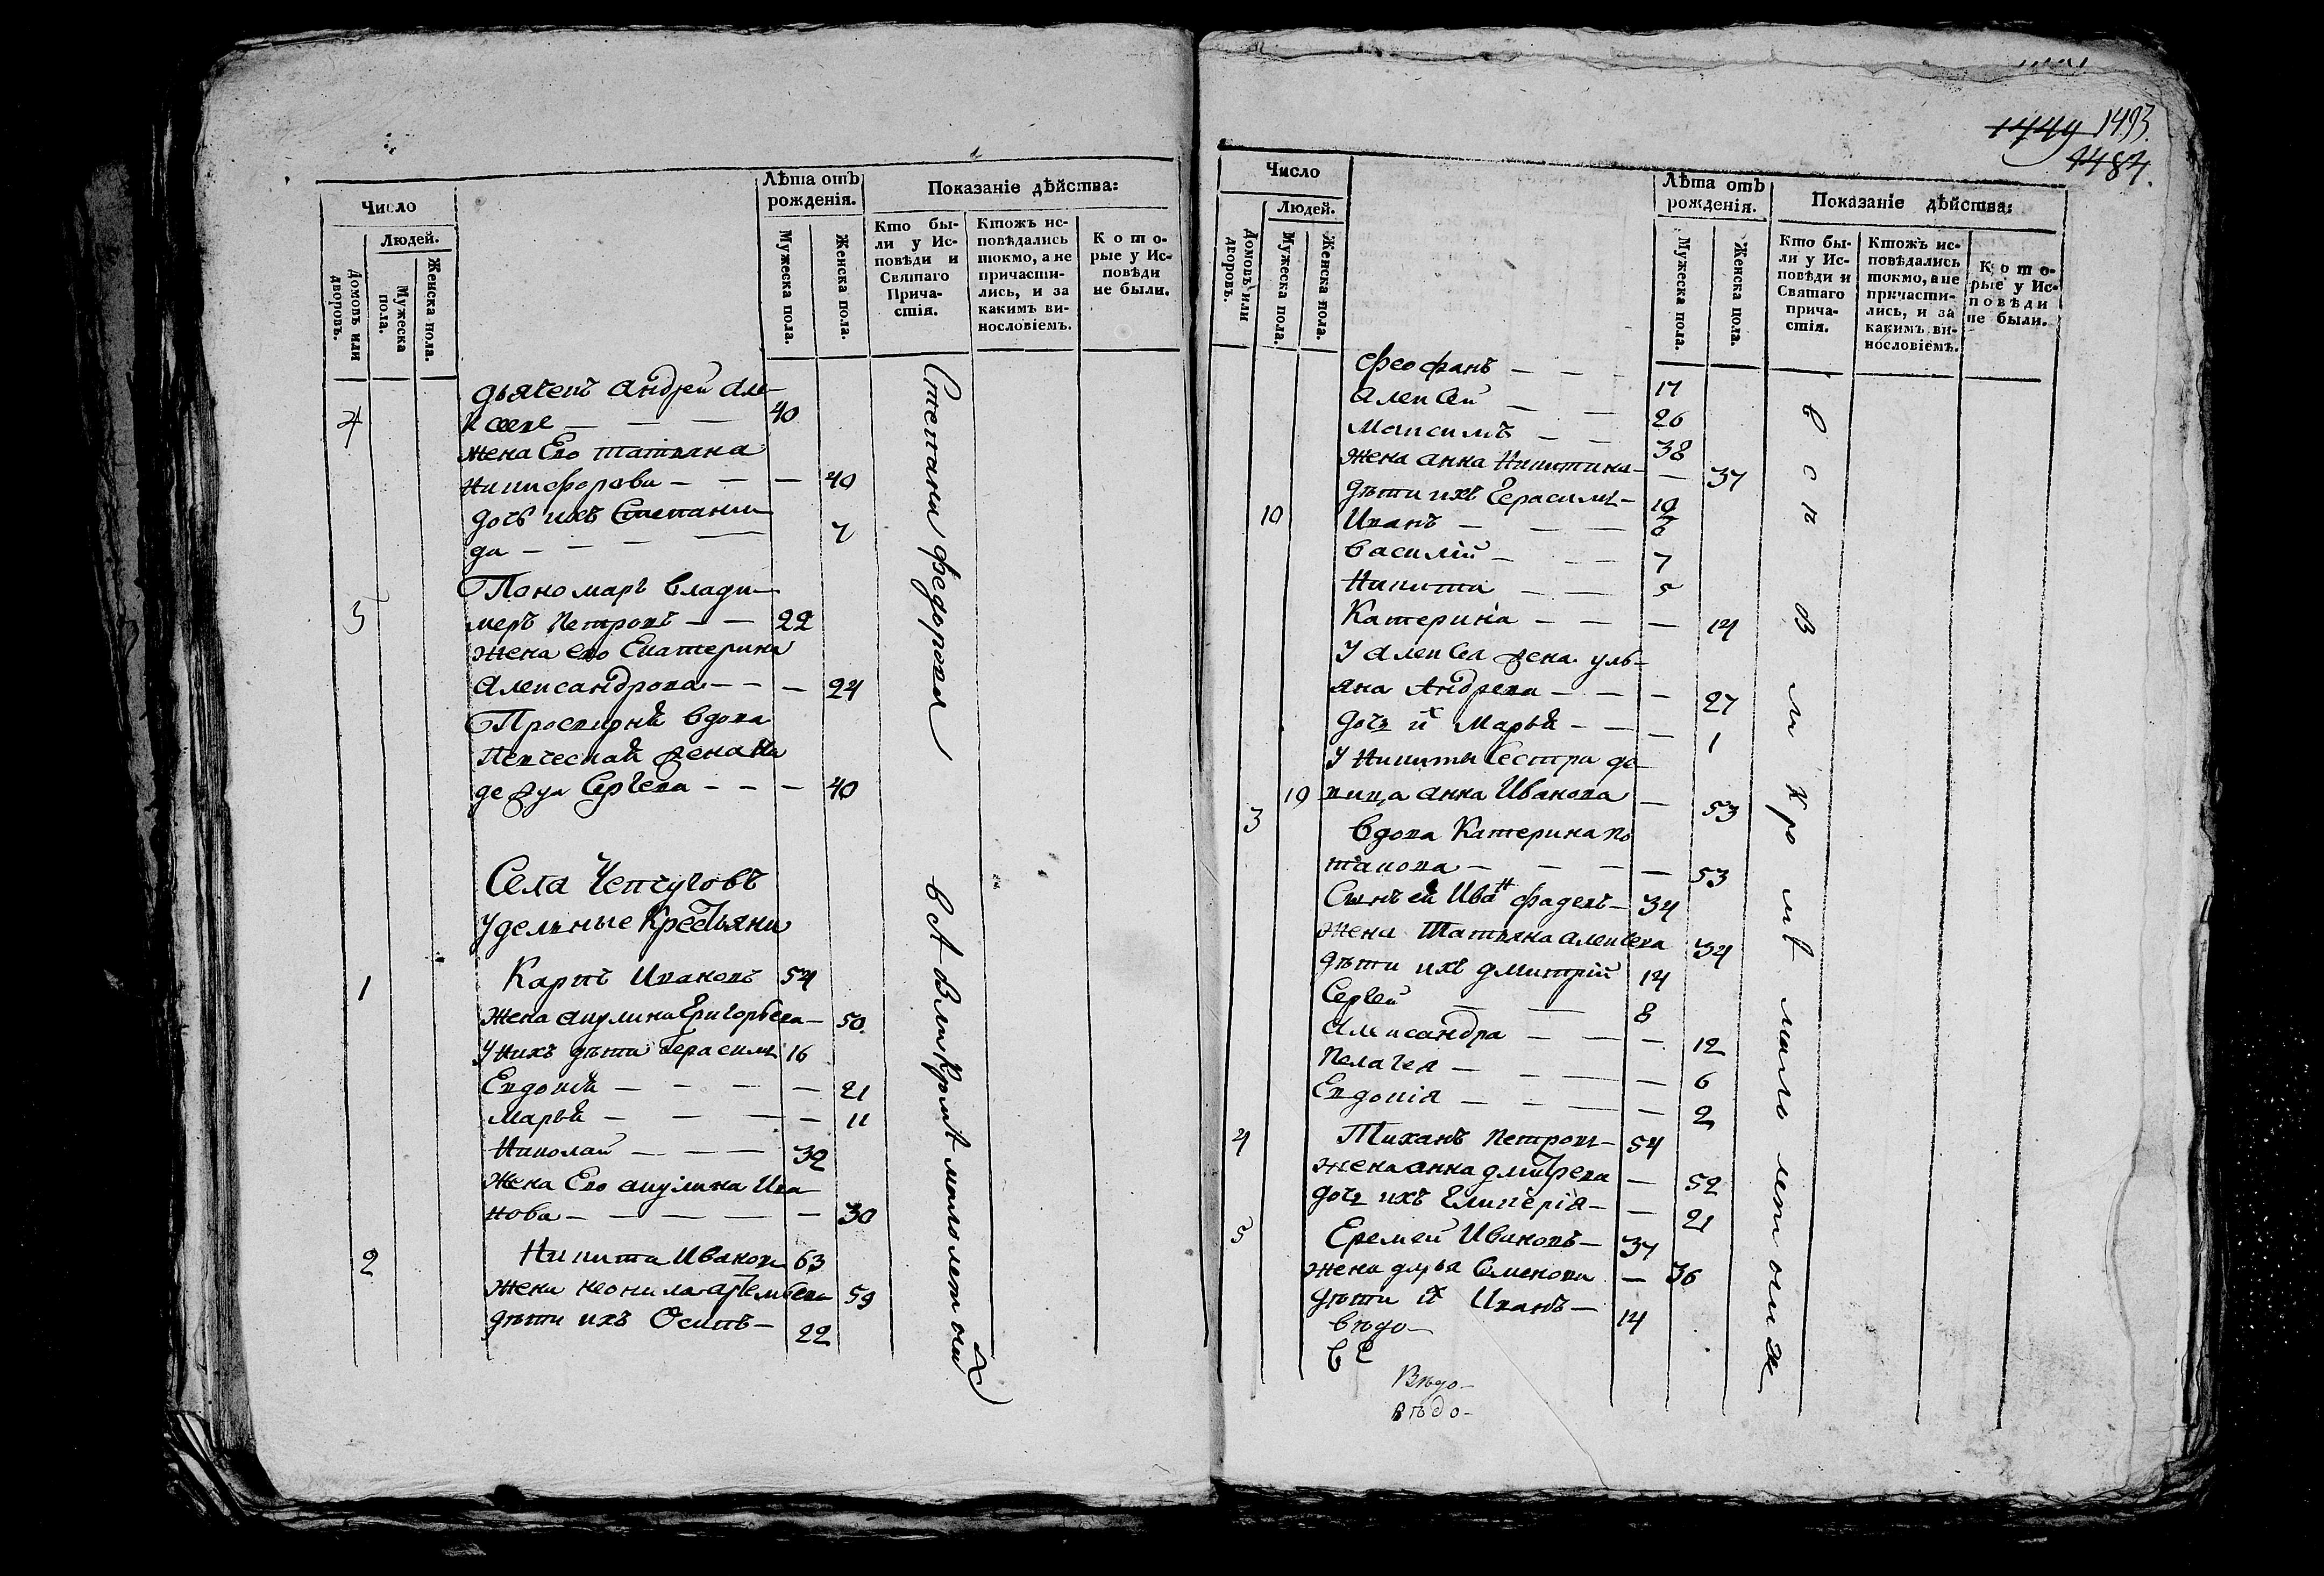 Число
Людей.
Домовъ или дворовъ.
Мужеска пола.
Женска пола.
Лѣта отъ рожденія.
Мужеска пола.
Женска пола.
Показаніе дѣйства:
Кто бы-
ли у Ис-
повѣди и
Святаго
Прича-
стія.
Ктожъ ис-
повѣдались
токмо, а не
причасти-
лись, и за
какимъ ви-
нословіемъ.
К о т о-
рые у Ис-
повѣди
не были.
дьячекъ Андрей Але-
4 40
жена Его татьяна
Никифорова — — — 40
дочь ихъ Степани-
да — — — 7
Пономарь Влади-
3 меръ Петровъ — — 22
жена его Екатерина
Александрова — — — 24
Просвирня вдова
жена На
дежда Сергеева — — — 40
Села Чепчуговъ
Удельные Крестьяни
1 Карпъ Ивановъ 54
жена акулина Григорьева — 50
У нихъ дѣти Герасимъ 16
Евдокия — — — — 21
Марья — — — — 11
Николай — — — 32
Жена Его акулина Ива
нова — — — — — 30
2 Никита Ивановъ 63
жена неонила 59
дѣти ихъ Осипъ — 22
Степани федорови
вся вли кромѣ малолетних
1449 1493.
1484.
Число
Людей.
Домовъ или дворовъ.
Мужеска пола.
Женска пола.
Лѣта отъ рожденія.
Мужеска пола.
Женска пола.
Показаніе дѣйства:
Кто бы-
ли у Ис-
повѣди и
Святаго
прича-
стія.
Ктожъ ис-
повѣдались
токмо, а не
причасти-
лись, и за
какимъ ви-
нословіемъ.
К о т о-
рые у Ис-
повѣди
не были.
Феофанъ — — — 17
Алексей — — 26
Максимъ — — 38
жена анна Никитина — — 37
дѣти ихъ Герасимъ — 10
10 Иванъ — — —
Василій — — — 7
Никита — — 5
Катерина — — — 14
У Алексея жена уль-
яна Андрева — — — 27
дочь их Марья — — — 1
У Никиты Сестра де-
10 вица анна Иванова — 53
3 вдова Катерина по
тапова — — — — 53
Сынъ ей Иван фадевъ — 34
жена Татьяна алексева 34
дѣти ихъ дмитрій 14
Сергей — — 8
Александра — — — 12
Пелагея — — — — 6
Евдокія — — — — 2
4 Тиханъ Петровъ — 54
жена анна дмитрева — 52
дочь ихъ Гликерія — — 21
5 Еремей Ивановъ — 37
жена дарья Семенова — 36
дѣти их Иванъ — 14
вѣдо-
Вѣдо-
вѣдо-
всѣ вли кромѣ малолетних